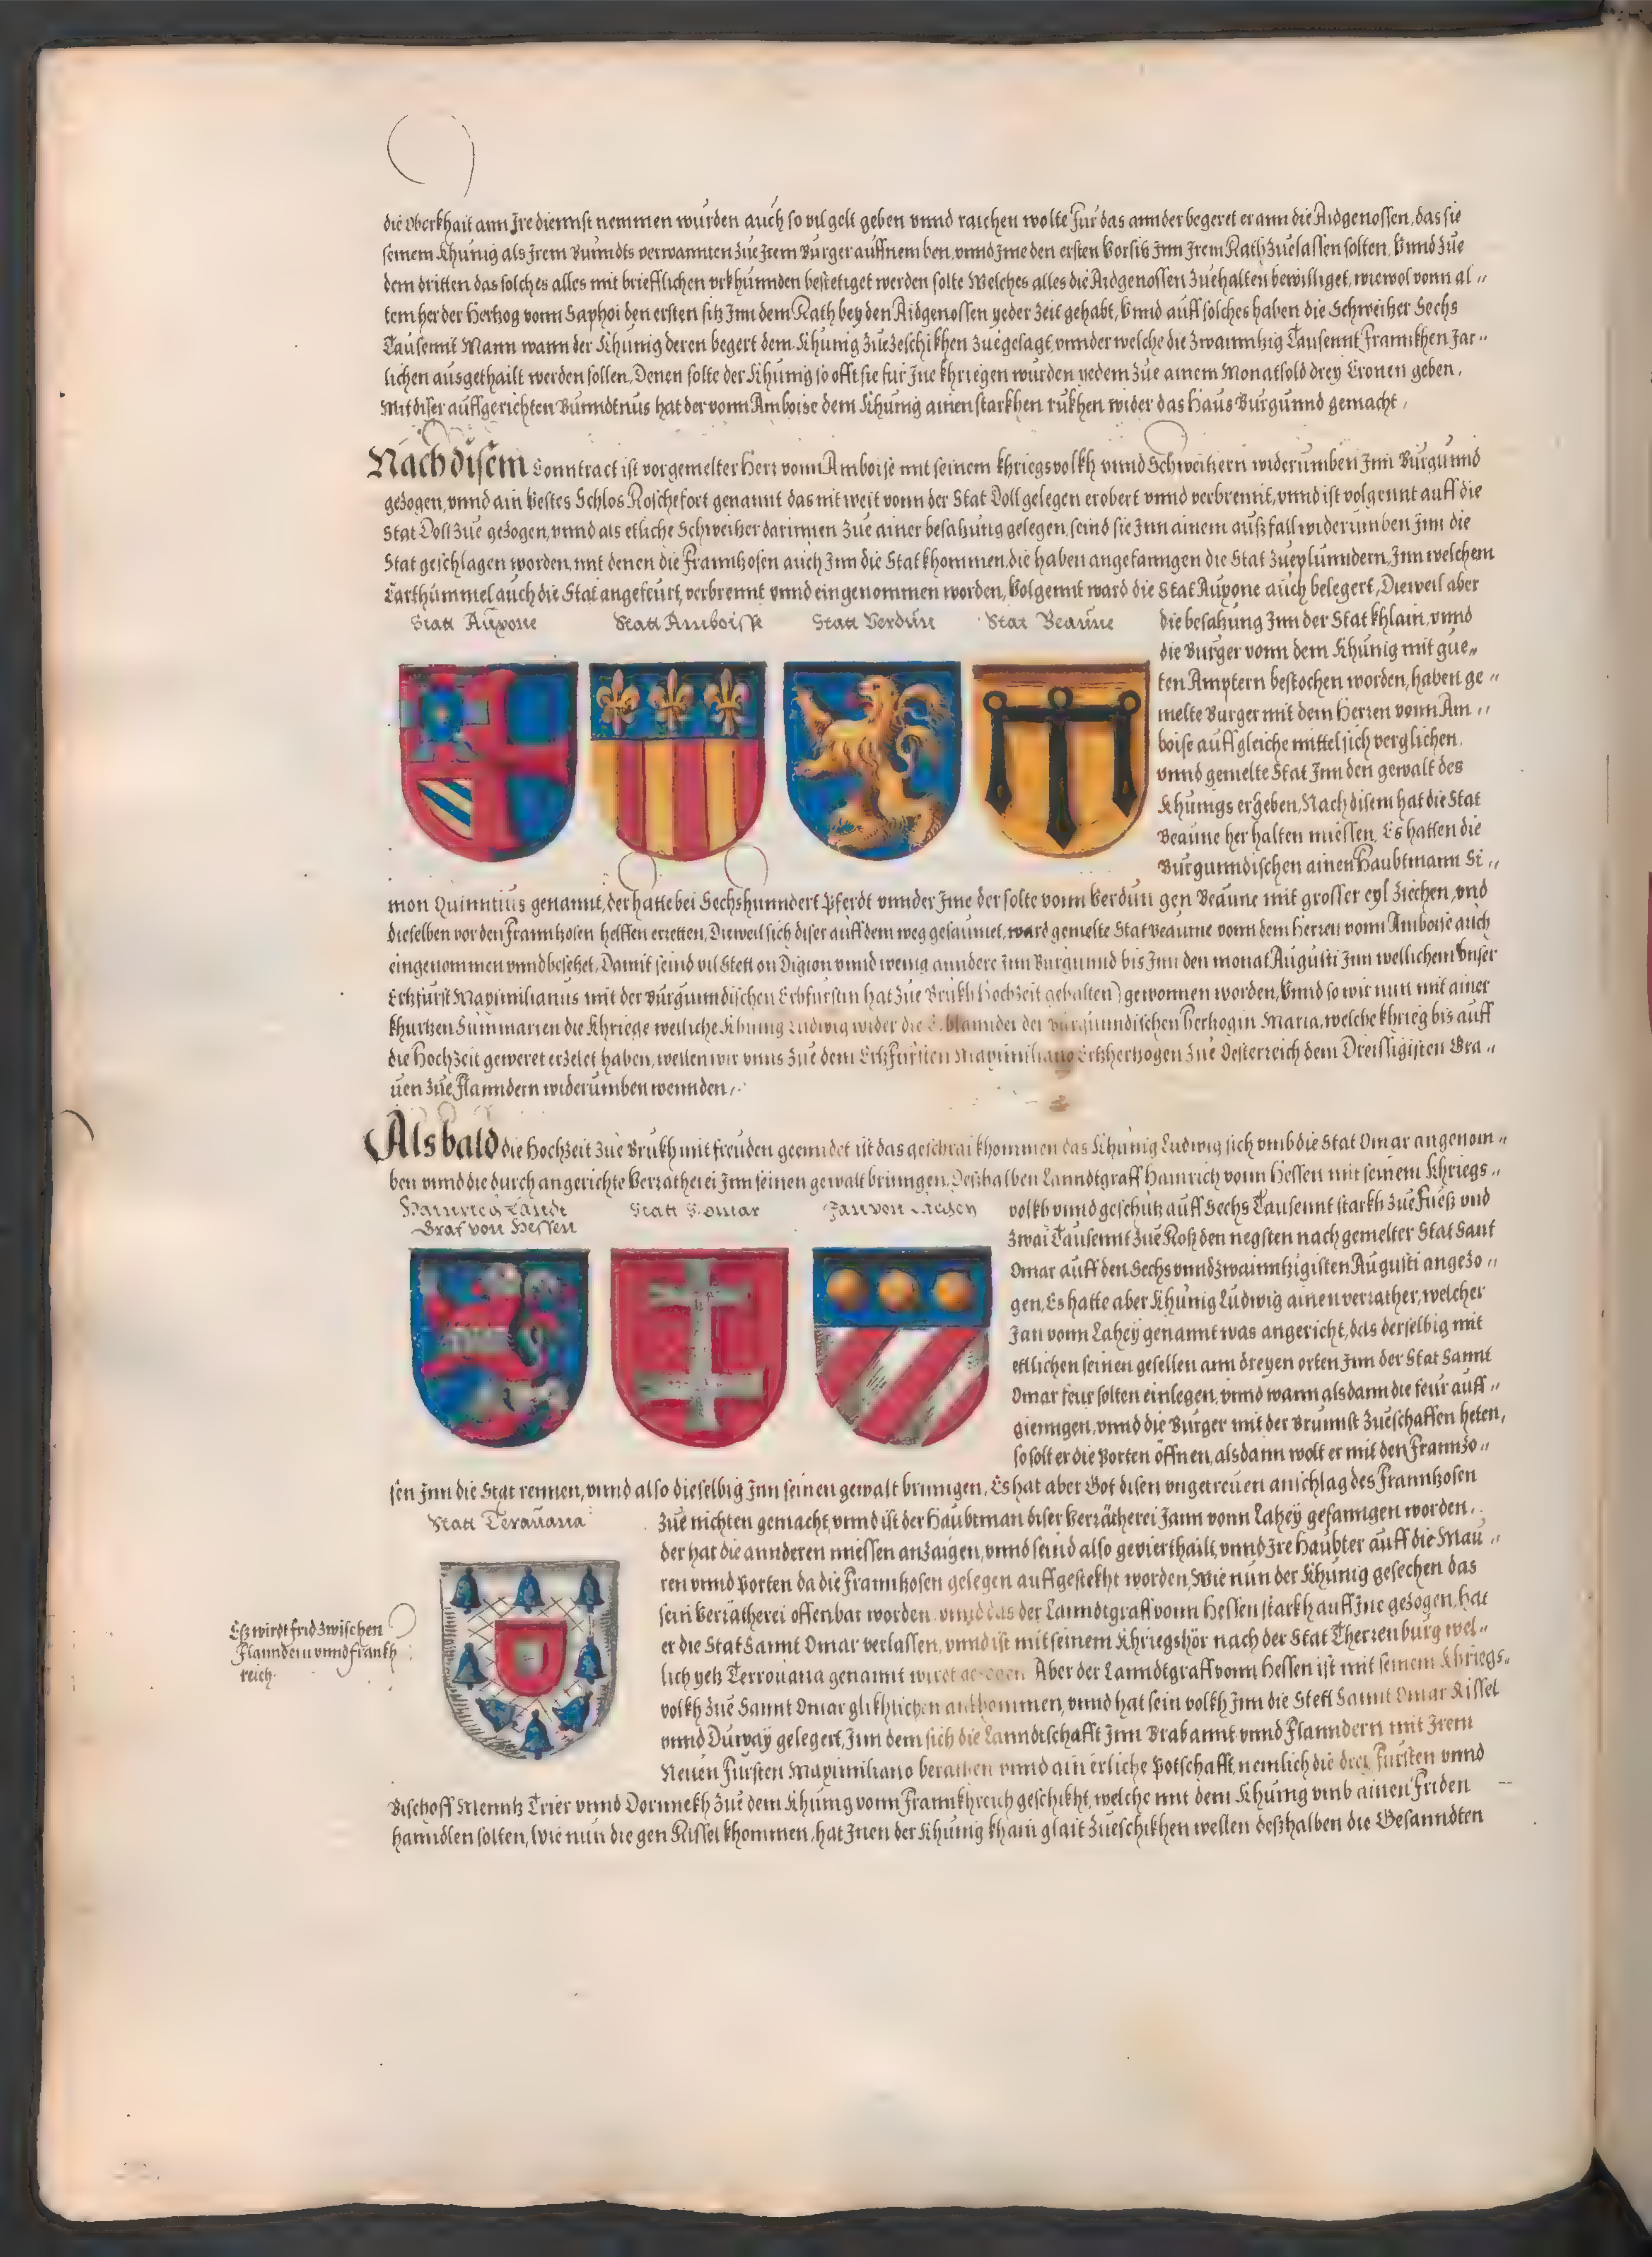 die Oberkhait ann Jre diennst nemmen wurden auch so vil gelt geben vnnd raichen wolte Für das annder begeret er ann die Aidgenossen, das sie
seinem Khünig als Jrem Bundts verwannten zue Jrem Burger auffnemben, vnnd Jme den ersten Vorsitz Jnn Jrem Rath zuelassen solten, Vnnd zue
dem dritten das solches alles mit briefflichen vrkhunnden bestetiget werden solte Welches alles die Aidgenossen zuehalten bewilliget, wiewol vonn al„
tem her der Hertzog vonn Saphoi den ersten sitz Jnn dem Rath bey den Aidgenossen yeder zeit gehabt, Vnnd auff solches haben die Schweitzer Sechs
Tausennt Mann wann der Khünig deren begert dem Khünig zuezeschikhen zuegesagt, vnnder welche die zwainntzig Tausennt Frannkhen Jar„
lichen ausgethailt werden sollen, Denen solte der Khünig so offt sie für Jne khriegen wurden yedem zue ainem Monatsold drey Cronen geben,
Mit diser auffgerichten Bunndtnus hat der vonn Amboise dem Khünig ainen starkhen rukhen wider das Haus Burgunnd gemacht,
Nach disem Conntract ist vorgemelter Herr vonn Amboise mit seinem khriegsvolkh vnnd Schweitzern widerumben Jnn Burgunnd
gezogen, vnnd ain vestes Schlos Roschefort genannt das nit weit vonn der Stat Doll gelegen erobert vnnd verbrennt, vnnd ist volgennt auff die
Stat Doll zue gezogen, vnnd als etliche Schweitzer darinnen zue ainer besatzung gelegen, seind sie Jnn ainem aussfall widerumben Jnn die
Stat geschlagen worden, mit denen die Frannzosen auch Jnn die Stat khommen, die haben angefanngen die Stat zueplünndern, Jnn welchem
Lärthummel auch die Stat angefeurt, verbrennt vnnd eingenommen worden, Volgennt ward die Stat Auxone auch belegert, Dieweil aber
Statt Auxone Statt Amboisse Statt Verdun Stat Beaune
die besatzung Jnn der Stat khlain, vnnd
die Burger vonn dem Khünig mit gue„
ten Amptern bestochen worden, haben ge„
melte Burger mit dem Herren vonn Am„
boise auff gleiche mittel sich verglichen,
vnnd gemelte Stat Jnn den gewalt des
Khünigs ergeben, Nach disem hat die Stat
Beaune her halten müessen, Es hatten die
Burgunndischen ainen Haubtmann Si„
mon Quinntius genannt, der hatte bei Sechshunndert Pferdt vnnder Jme der solte vonn Verdun gen Beaune mit grosser eyl ziechen, vnd
dieselben vor den Frannzosen helffen erretten, Dieweil sich diser auff dem weg gesaumet, ward gemelte Stat Beaune vonn dem Herren vonn Amboise auch
eingenommen vnnd besetzet, Damit seind vil Stett on Digion vnnd wenig anndere Jnn Burgunnd bis Jnn den monat Augusti Jnn wellichem Vnser
Ertzfürst Maximilianus mit der Burgunndischen Erbfürstin hat zue Brukh Hochzeit gehalten) gewonnen worden, Vnnd so wir nun mit ainer
khurtzen Summarien die Khriege weiliche Khünig Ludwig wider die Erblannder der Burgunndischen Hertzogin Maria, welche khrieg bis auff
die Hochzeit geweret erzelet haben, wellen wir vnns zue dem Ertzfürsten Maximiliano Ertzhertzogen zue Oesterreich dem Dreissigisten Gra„
uen zue Flanndern widerumben wennden,
Alsbald die Hochzeit zue Brukh mit freuden geenndet ist das geschrai khommen das Khünig Ludwig sich vmb die Stat Omar angenom„
ben vnnd die durch angerichte Verrätherei Jnn seinen gewalt bringen, Desshalben Lanndtgraff Hainrich vonn Hessen mit seinem Khriegs„
Hainrich Landt
Graf von Hessen
Statt S. Omar Jan von Lahey
volkh vnnd geschütz auff Sechs Tausennt starkh zue Fuess vnd
zwai Tausennt zue Ross den negsten nach gemelter Stat Sant
Omar auff den Sechs vnnd zwainntzigisten Augusti angezo„
gen, Es hatte aber Khünig Ludwig ainen verräther, welcher
Jan vonn Lahey genannt was angericht, das derselbig mit
ettlichen seinen gesellen ann dreyen orten Jnn der Stat Sannt
Omar feur solten einlegen, vnnd wann alsdann die feur auff„
gienngen, vnnd die Burger mit der Brunnst zueschaffen heten,
so solt er die Porten öffnen, alsdann wolt er mit den Frannzo„
sen Jnn die Stat rennen, vnnd also dieselbig Jnn seinen gewalt bringen, Es hat aber Got disen vngetreuen anschlag des Frannzosen
Statt Terauana
zue nichten gemacht, vnnd ist der Haubtman diser Verrätherei Jann vonn Lahey gefanngen worden,
der hat die annderen müessen anzaigen, vnnd seind also gevierthailt, vnnd Jre Haubter auff die Mau„
ren vnnd Porten da die Frannzosen gelegen auffgestekht worden, Wie nun der Khünig gesechen das
sein Verrätherei offenbar worden, vnnd das der Lanndtgraff vonn Hessen starkh auff Jne gezogen, hat
er die Stat Sannt Omar verlassen, vnnd ist mit seinem Khriegshör nach der Stat Therrenburg wel„
lich yetz Terrouana genannt wirdt gezogen, Aber der Lanndtgraff vonn Hessen ist mit seinem Khriegs„
volkh zue Sannt Omar glikhlichen ankhommen, vnnd hat sein volkh Jnn die Stett Sannt Omar Rissel
vnnd Duway gelegert, Jnn dem sich die Lanndtschafft Jnn Brabannt vnnd Flanndern mit Jrem
Neuen Fürsten Maximiliano berathen vnnd ain erliche Potschafft, nemlich die drei Fursten vnnd
Bischoff Menntz Trier vnnd Dornnekh zue dem Khünig vonn Frannkhreich geschikht, welche mit dem Khünig vmb ainen Friden
hanndlen solten, Wie nun die gen Rissel khommen, hat Jnen der Khünig khain glait zueschikhen wellen desshalben die Gesanndten
Ess wirdt frid zwischen
Flanndern vnnd Frankh
reich